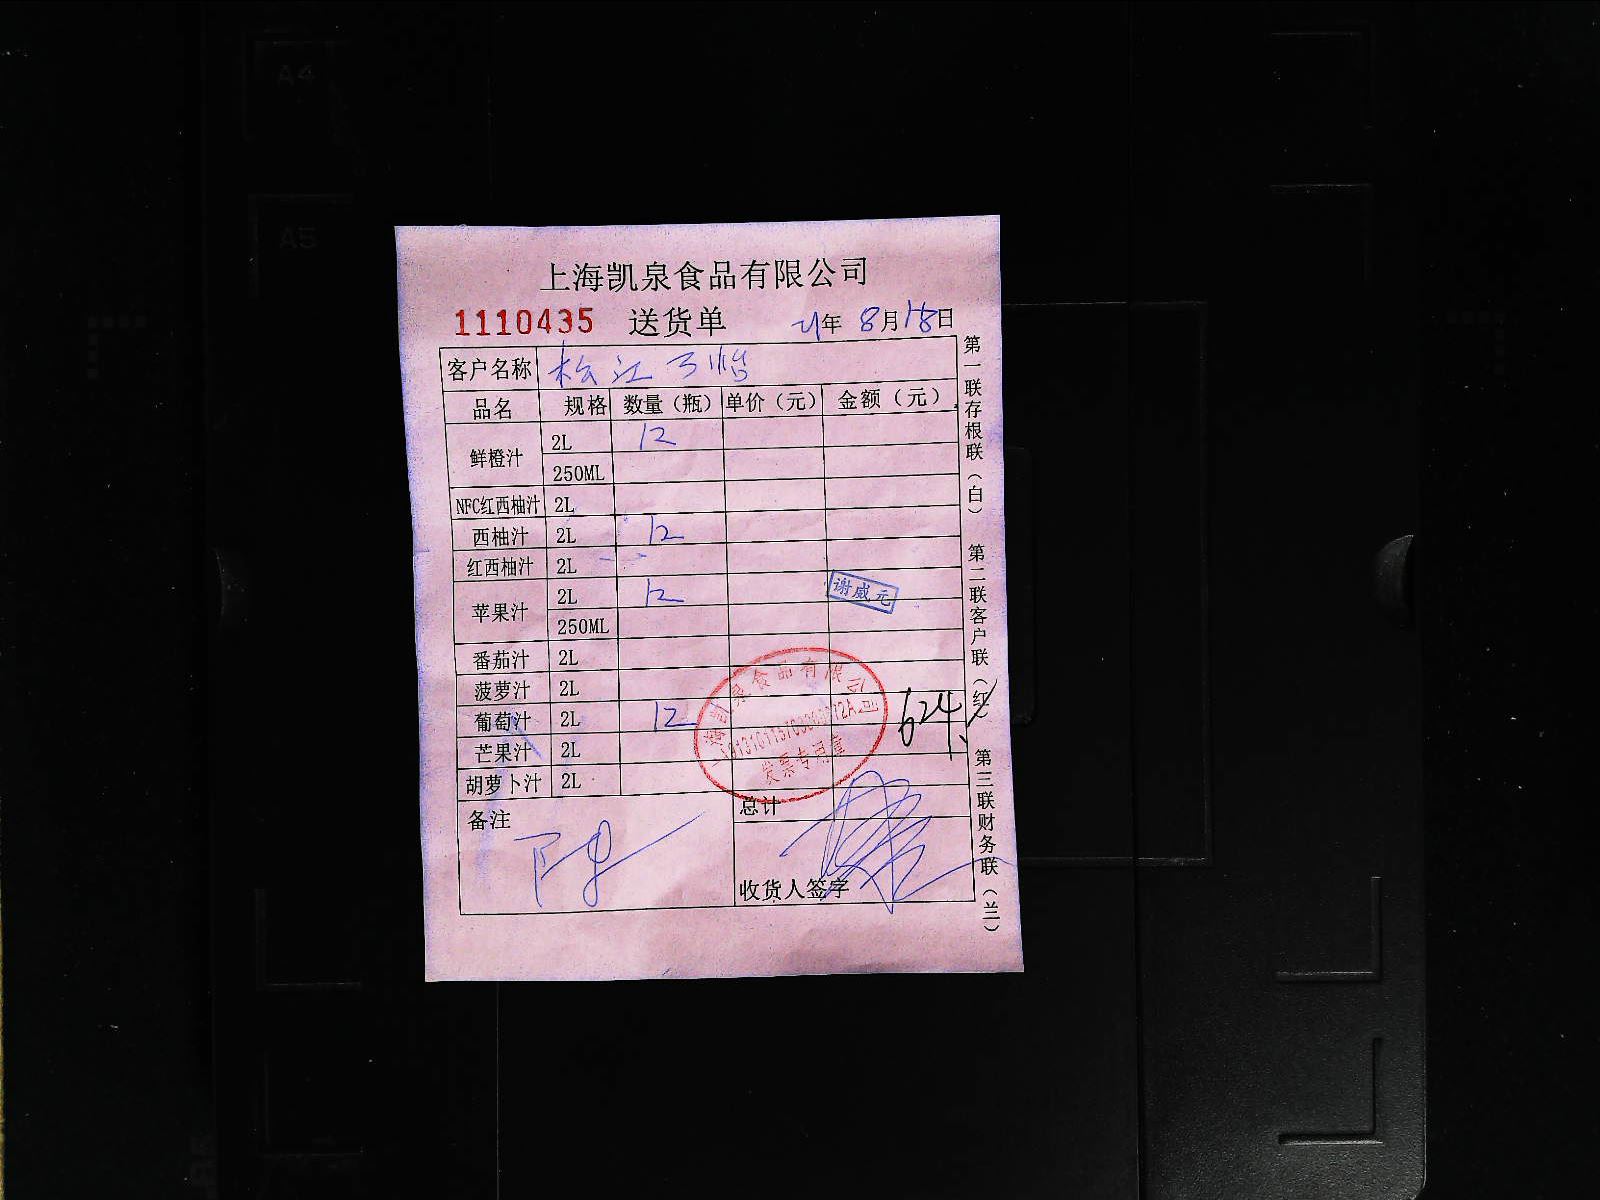 A4
A5
上海凯泉食品有限公司
1110435 送货单 21年 8月18日
客户名称 松江
品名 规格 数量（瓶） 单价（元） 金额（元）
鲜橙汁 2L 12
250ML
NFC红西柚汁 2L
西柚汁 2L 12
红西柚汁 2L
苹果汁 2L 12
250ML
谢威元
番茄汁 2L
菠萝汁 2L
葡萄汁 2L 12
624
芒果汁 2L
胡萝卜汁 2L
食品有限公司
发票专用章
备注
总计
收货人签字
第一联存根联（白） 第二联客户联（红） 第三联财务联（兰）